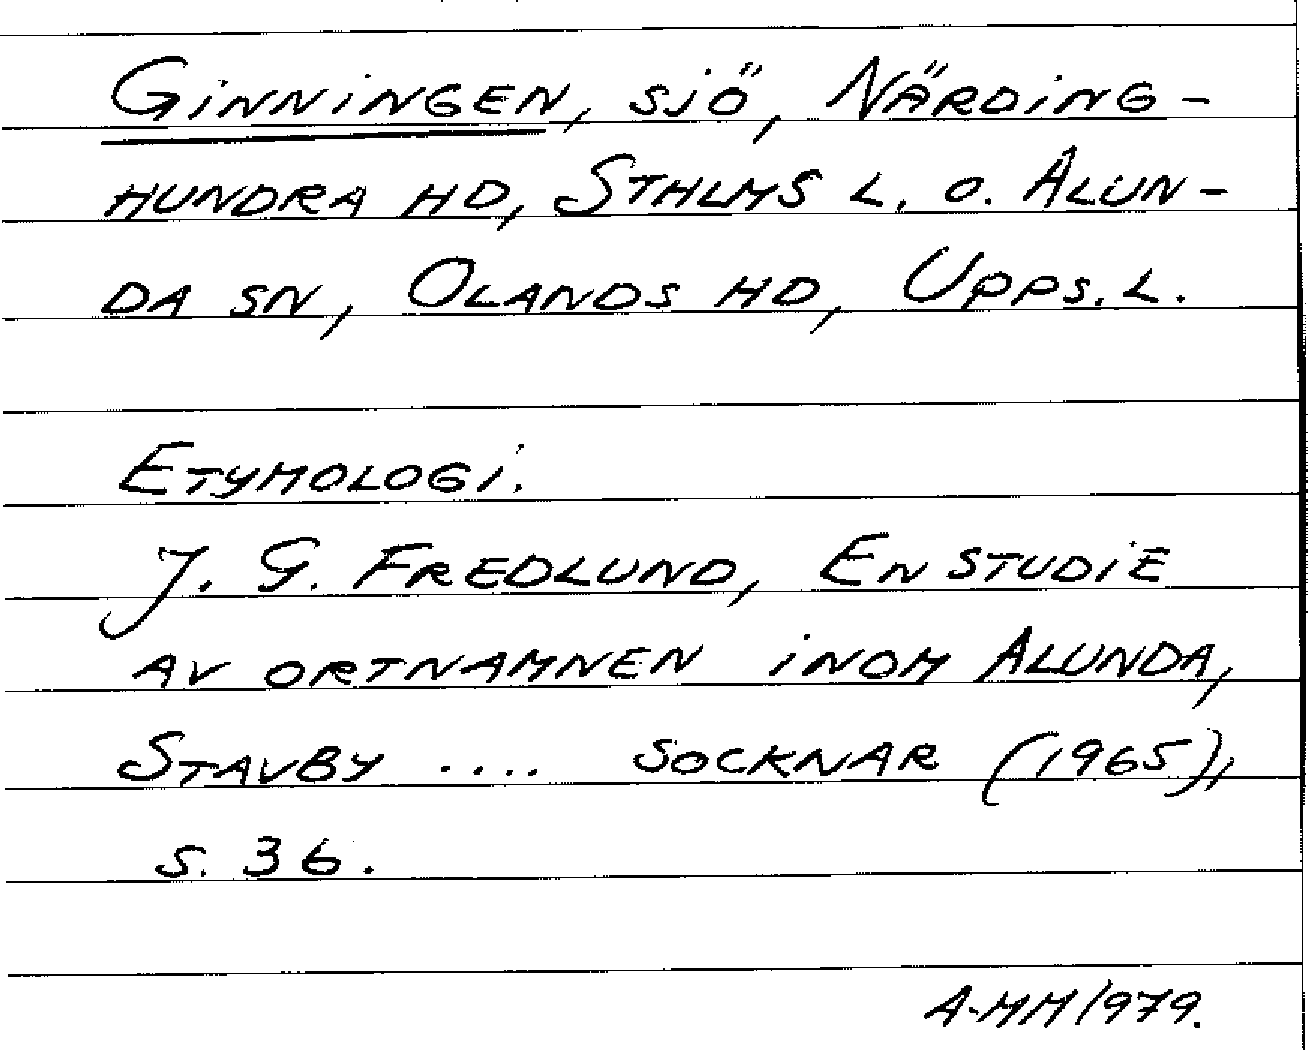 Ginningen, sjö, Närding-
hundra hd, Sthlms l. o. Alun-
da sn, Olands hd, Upps. l.
Etymologi.
J. G. Fredlund, En studie
av ortnamnen inom Alunda,
Stavby .... socknar (1965),
s. 36.
A-MM 1979.